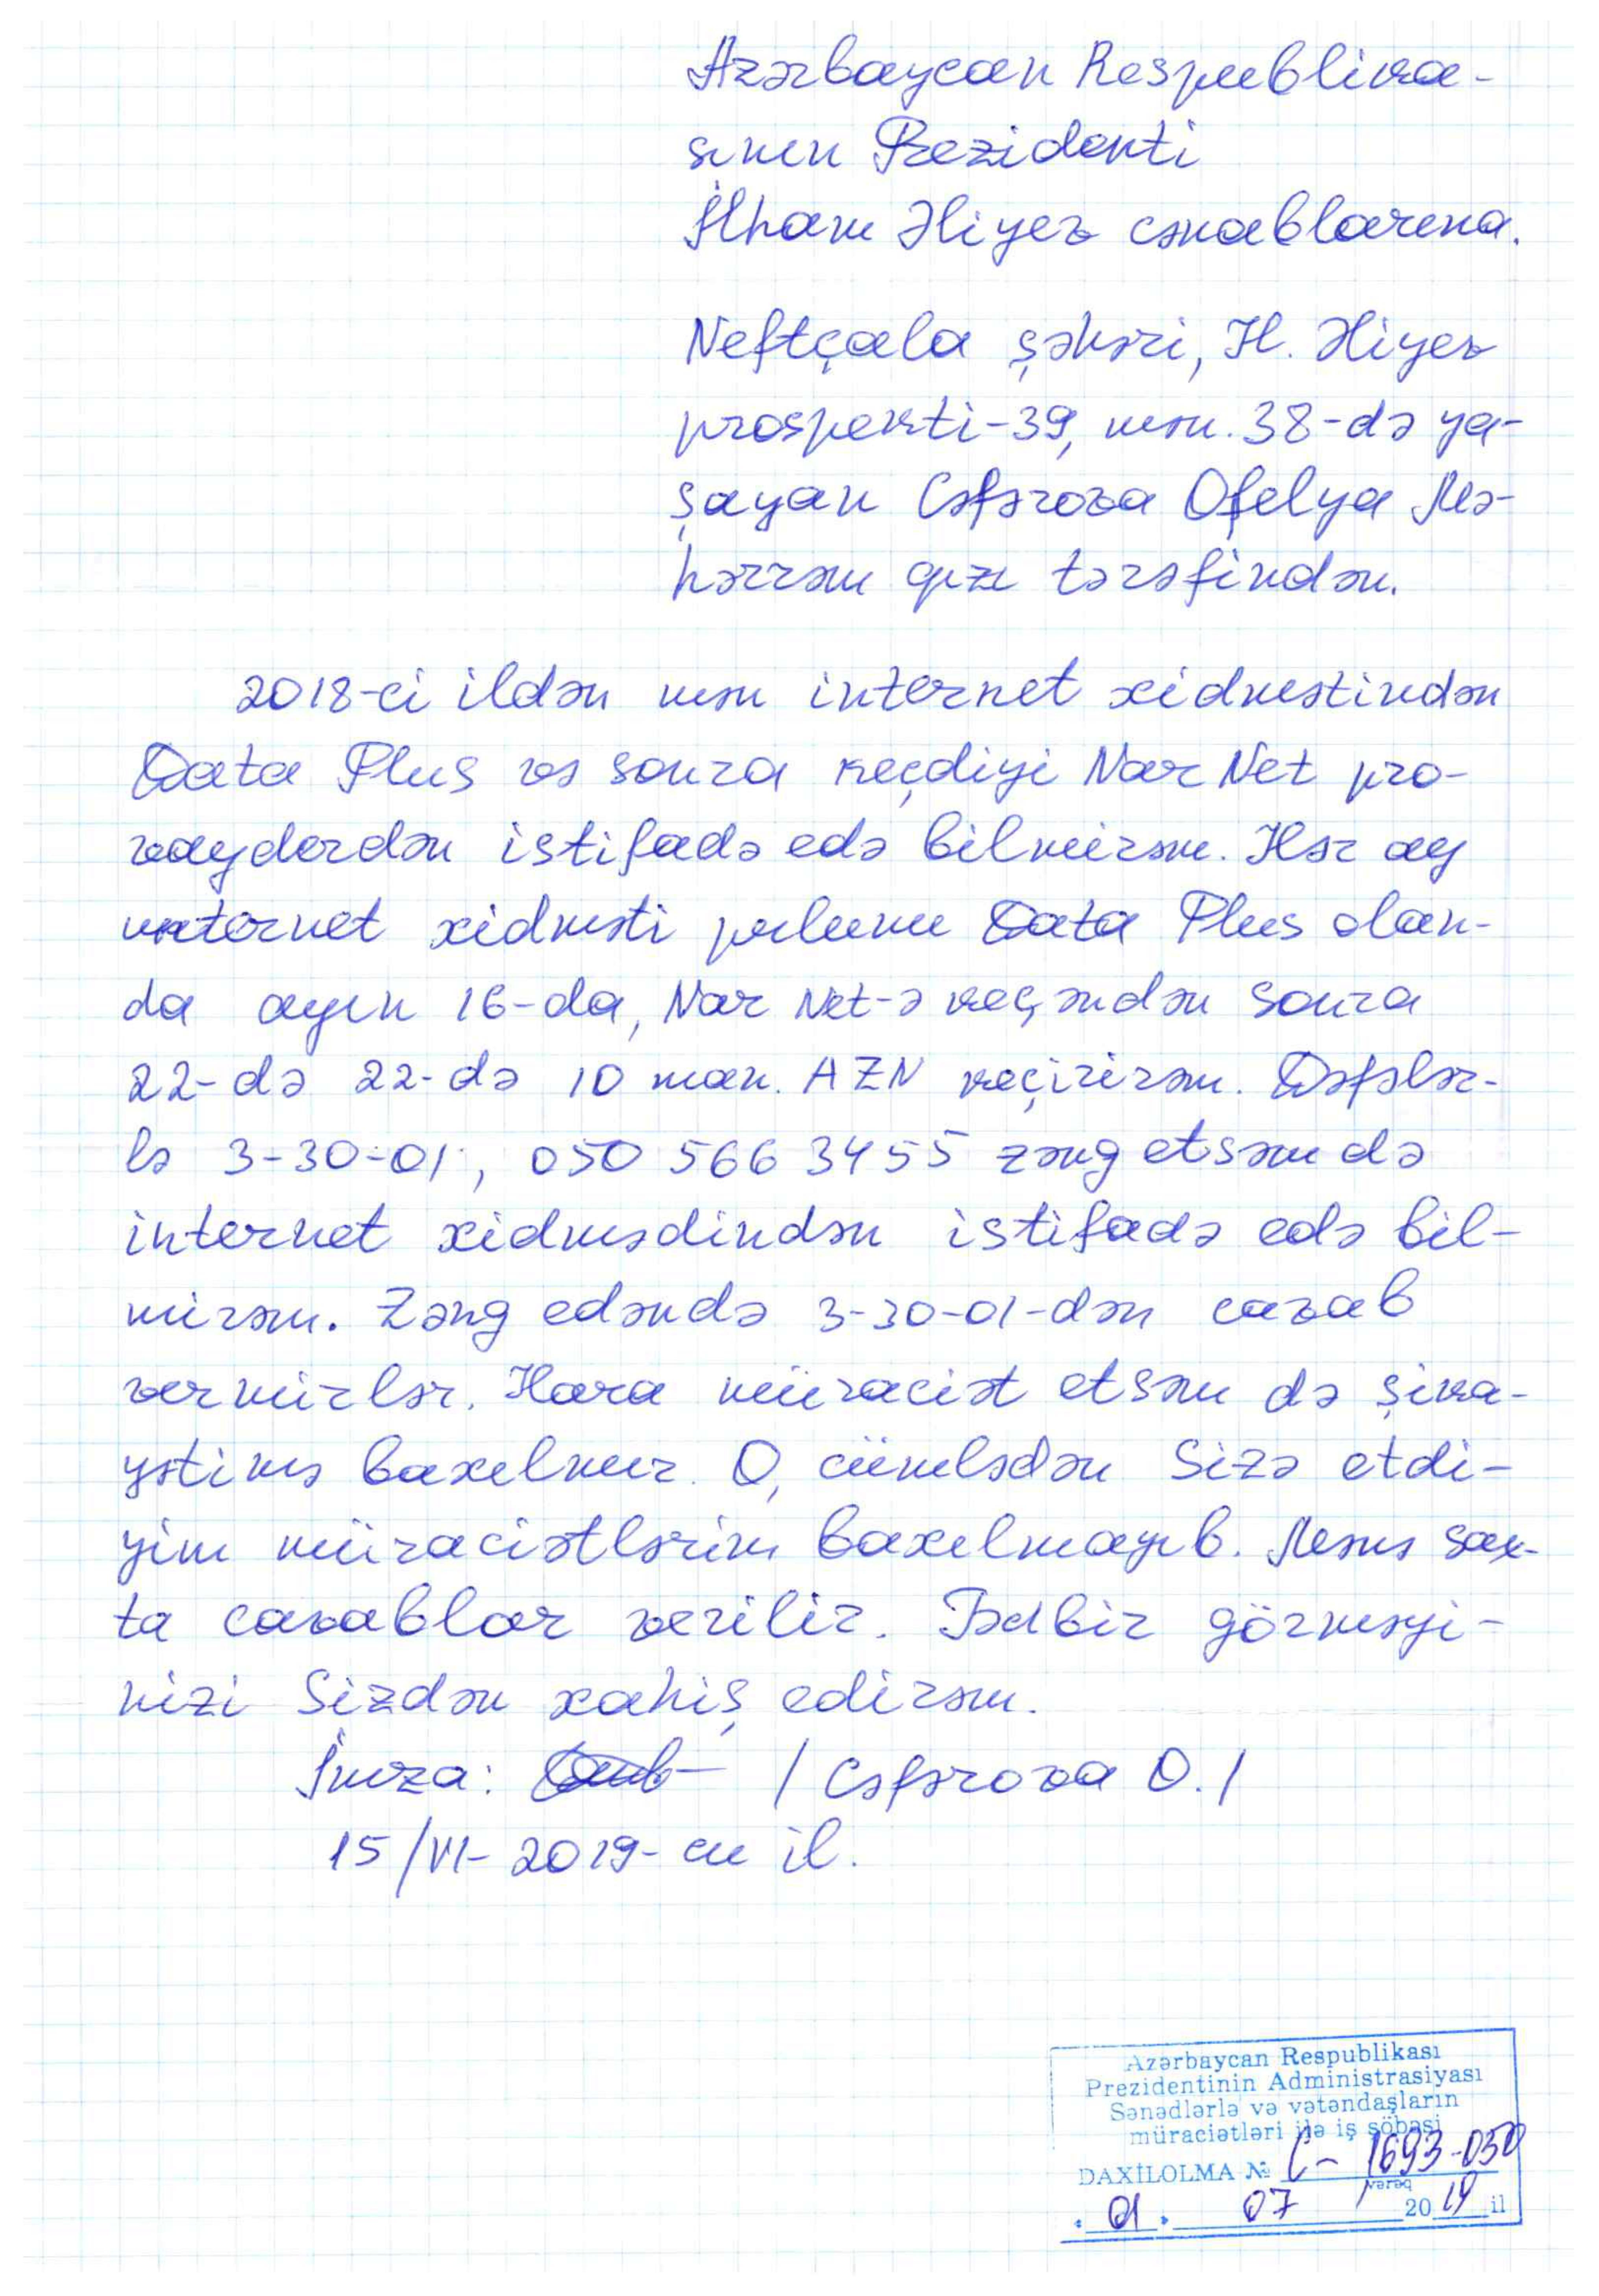 Azərbaycan Respublika-
sının Prezidenti
İlham Əliyev cənablarına.
Neftçala şəhəri, H. Əliyev
prospekti-39, mən. 38-də ya-
şayan Cəfərova Ofelya Mə-
hərrəm qızı tərəfindən.
2018-ci ildən mən internet xidmətindən
Data Plus və sonra keçdiyi Nar Net pro-
vayderdən istifadə edə bilmirəm. Hər ay
internet xidməti pulunu Data Plus olan-
da ayın 16-da, Nar Net-ə keçəndən sonra
22-də 22-də 10 man. AZN keçirirəm. Dəfələr-
lə 3-30-01, 050 566 3455 zəng etsəm də
internet xidmədindən istifadə edə bil-
mirəm. Zəng edəndə 3-30-01-dən cavab
vermirlər. Hara müraciət etsəm də şika-
yətimə baxılmır. O, cümlədən Sizə etdi-
yim müraciətlərim baxılmayıb. Mənə sax-
ta cavablar verilir. Tədbir görməyi-
nizi Sizdən xahiş edirəm.
İmza: / Cəfərova O. /
15/VI-2019-cu il.
Azərbaycan Respublikası
Prezidentinin Administrasiyası
Sənədlərlə və vətəndaşların
müraciətləri ilə iş şöbəsi
DAXİLOLMA № C- 1693-050
vərəq
"01" 07 2019 il